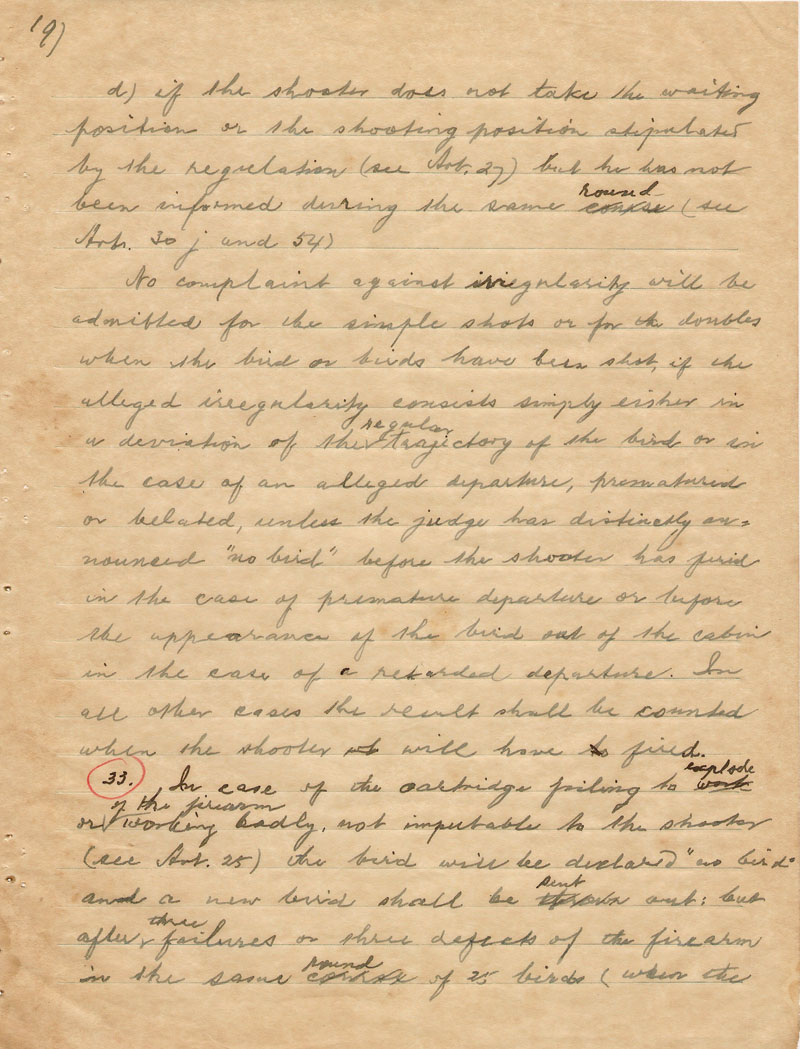 19)
d) if the shooter does not take the waiting
position or the shooting position stipulated
by the regulation (see Art. 27) but he has not
round
been informed during the same course (see
Art. 30 j and 54)
No complaint against irregularity will be
admitted for the simple shots or for the doubles
when the bird or birds have been shot, if the
alleged irregularity consists simply either in
regular
a deviation of the trajectory of the bird or in
the case of an alleged departure, prematured
or belated, unless the judge has distinctly an=
nounced "no bird" before the shooter has fired
in the case of premature departure or before
the appearance of the bird out of the cabin
in the case of a retarded departure. In
all other cases the result shall be counted
when the shooter will have fired.
explode
33. In case of the cartridge failing to work
of the firearm
or working badly, not imputable to the shooter
(see Art. 25) the bird will be declared "no bird"
sent
and a new bird shall be out: but
three
after failures or three defects of the firearm
round
in the same of 25 birds (when the